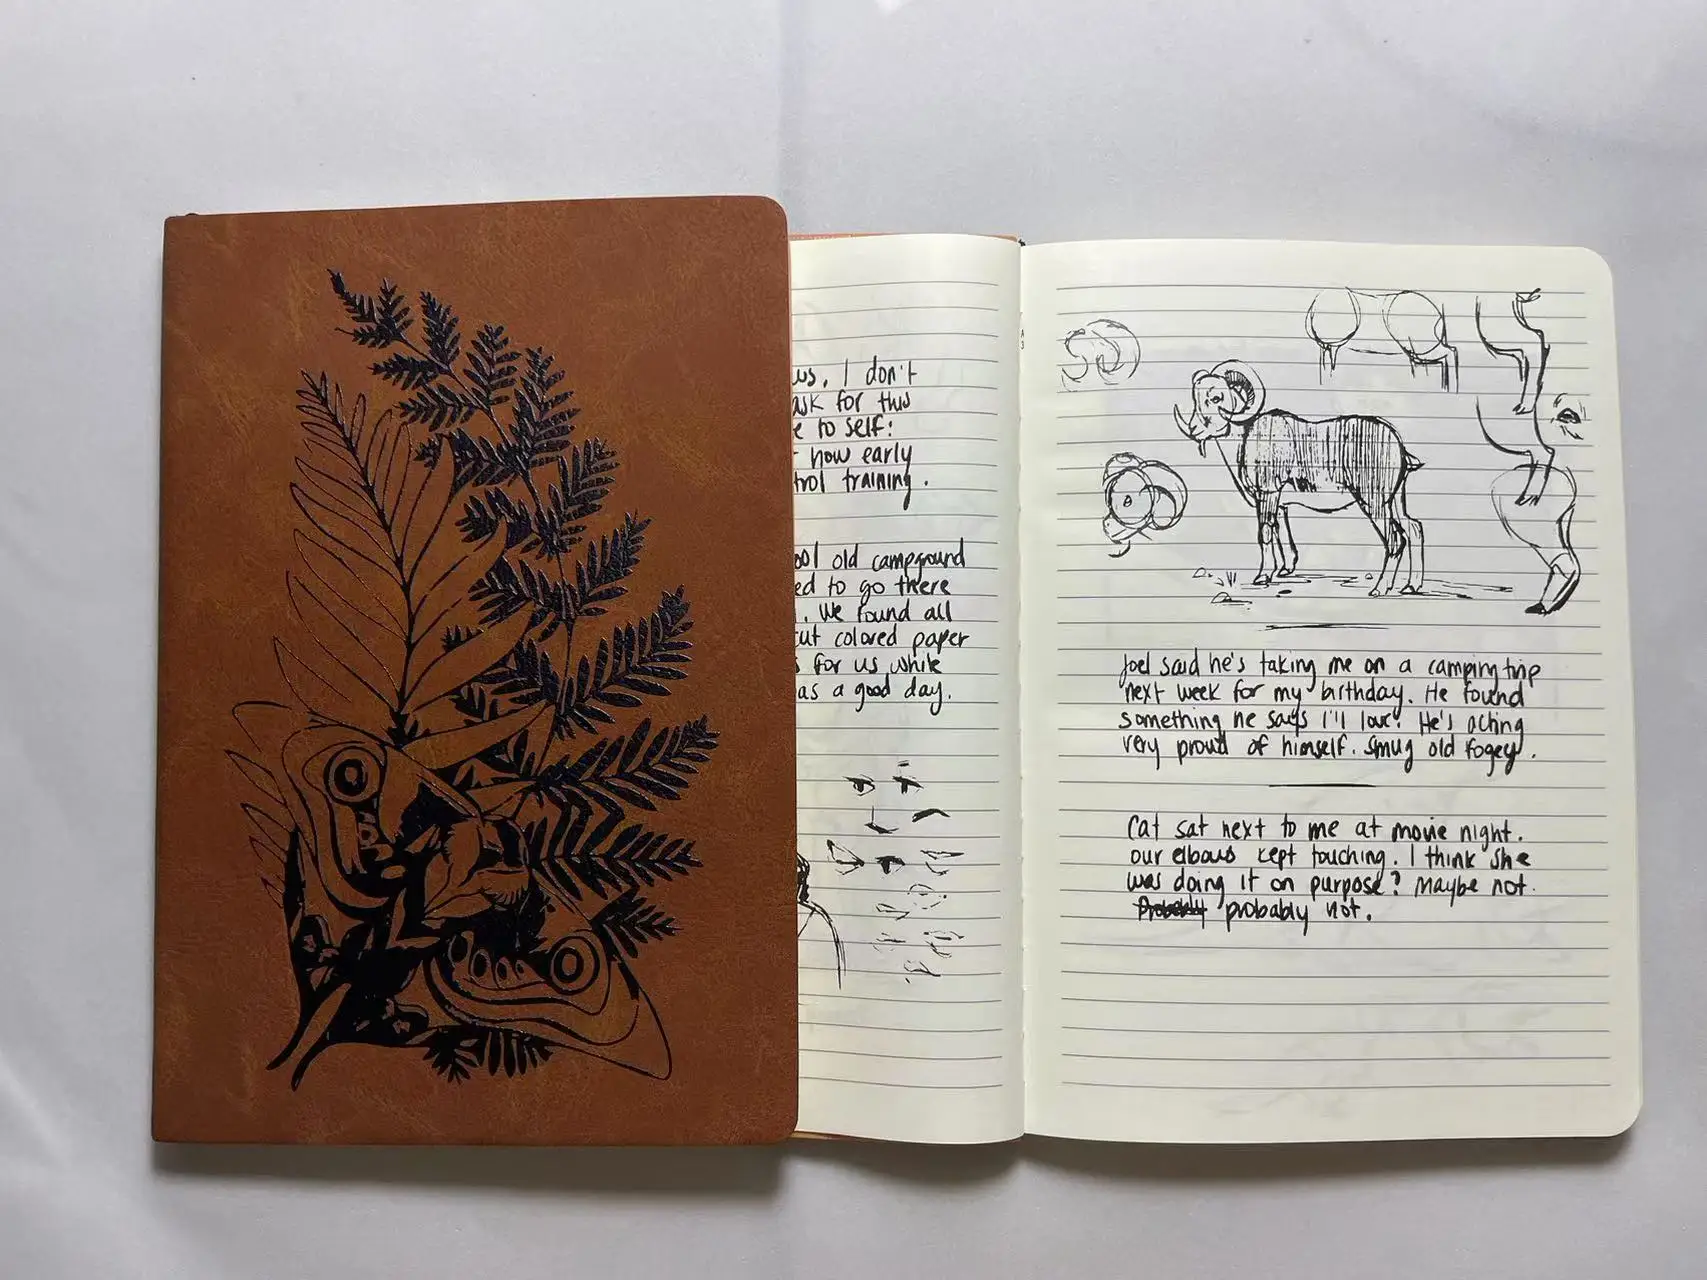 ws. I don't
ask for this
e to self:
how early
trol training.
ool old campground
ed to go there
. We found all
cut colored paper
s for us while
as a good day.
Joel said he's taking me on a camping trip
next week for my birthday. He found
something he says I'll love. He's acting
very proud of himself. Smug old fogey.
Cat sat next to me at movie night.
our elbows kept touching. I think she
was doing it on purpose? Maybe not.
Probably probably not.